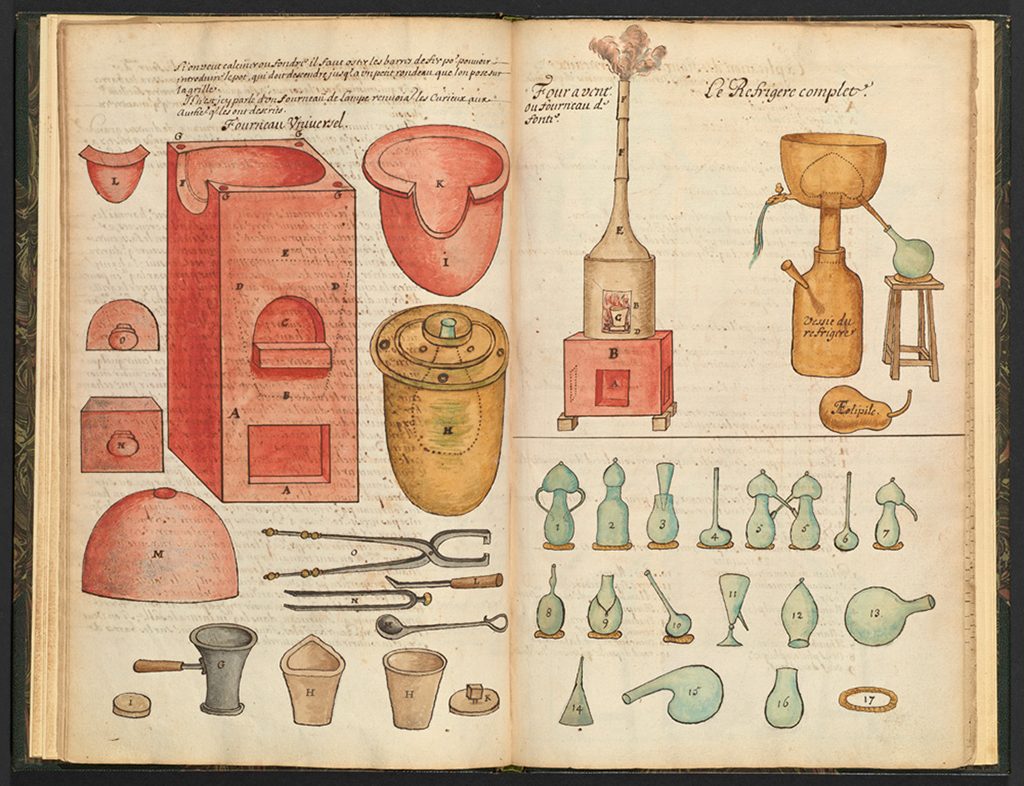 Si on veut calciner ou fondre il faut oster les barres de fer po.r pouuoir
introduire le pot, qui doit descendre jusq'a un petit rondeau que l'on pose sur
la grille.
Je n'ay icy parlé d'un fourneau de Lampe renuoia.t les Curieux aux
Auth.rs q.i les ont descrits
Fourneau Vniversel.
G
G
F
G
G
E
D
D
C
B
A
A
L
K
I
O
N
M
H
O
L
N
G
H
H
I
K
Four a vent.
ou fourneau d.e
fonte.
F
F
E
B
G
D
B
A
Le Refrigere complet.
Vessie du
refrigere
Æolipile.
1
2
3
4
5
5
6
7
8
9
10
11
12
13
14
15
16
17